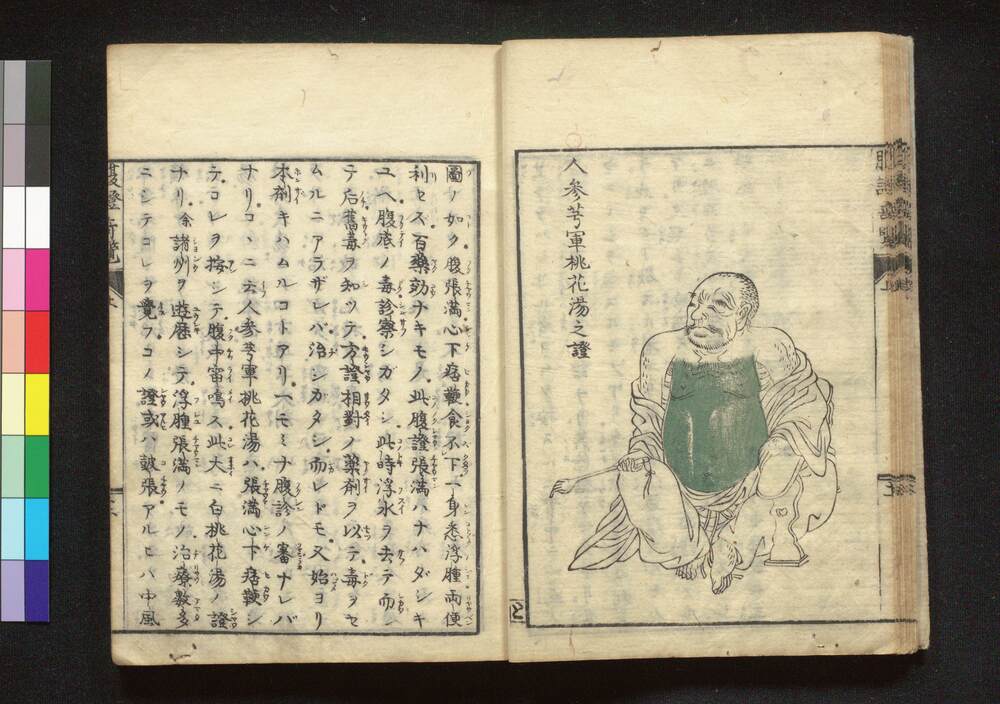 人参芎軍桃花湯之證
圖ノ如ク腹張満心下痞鞕食不下一身悉浮腫両便
利セス百藥効ナキモノ此腹證張満ハナハダシキ
ユヘ腹底ノ毒診察シガタシ此時浮水ヲ去テ而シ
テ后舊毒ヲ知ツテ方證相對ノ藥剤ヲ以テ毒ヲセ
ムルニアラザレバ治シガタシ而レドモ又始ヨリ
本剤キハムルコトアリ一モミナ腹診ノ審ナレバ
ナリコヽニ云人参芎軍桃花湯ハ張満心下痞鞕シ
テコレヲ按シテ腹中雷鳴ス此大ニ白桃花湯ノ證
ナリ余諸州ヲ遊歴シテ浮腫張満ノモノ治療数多
ニシテコレヲ覺フコノ證或ハ皷張アルヒハ中風